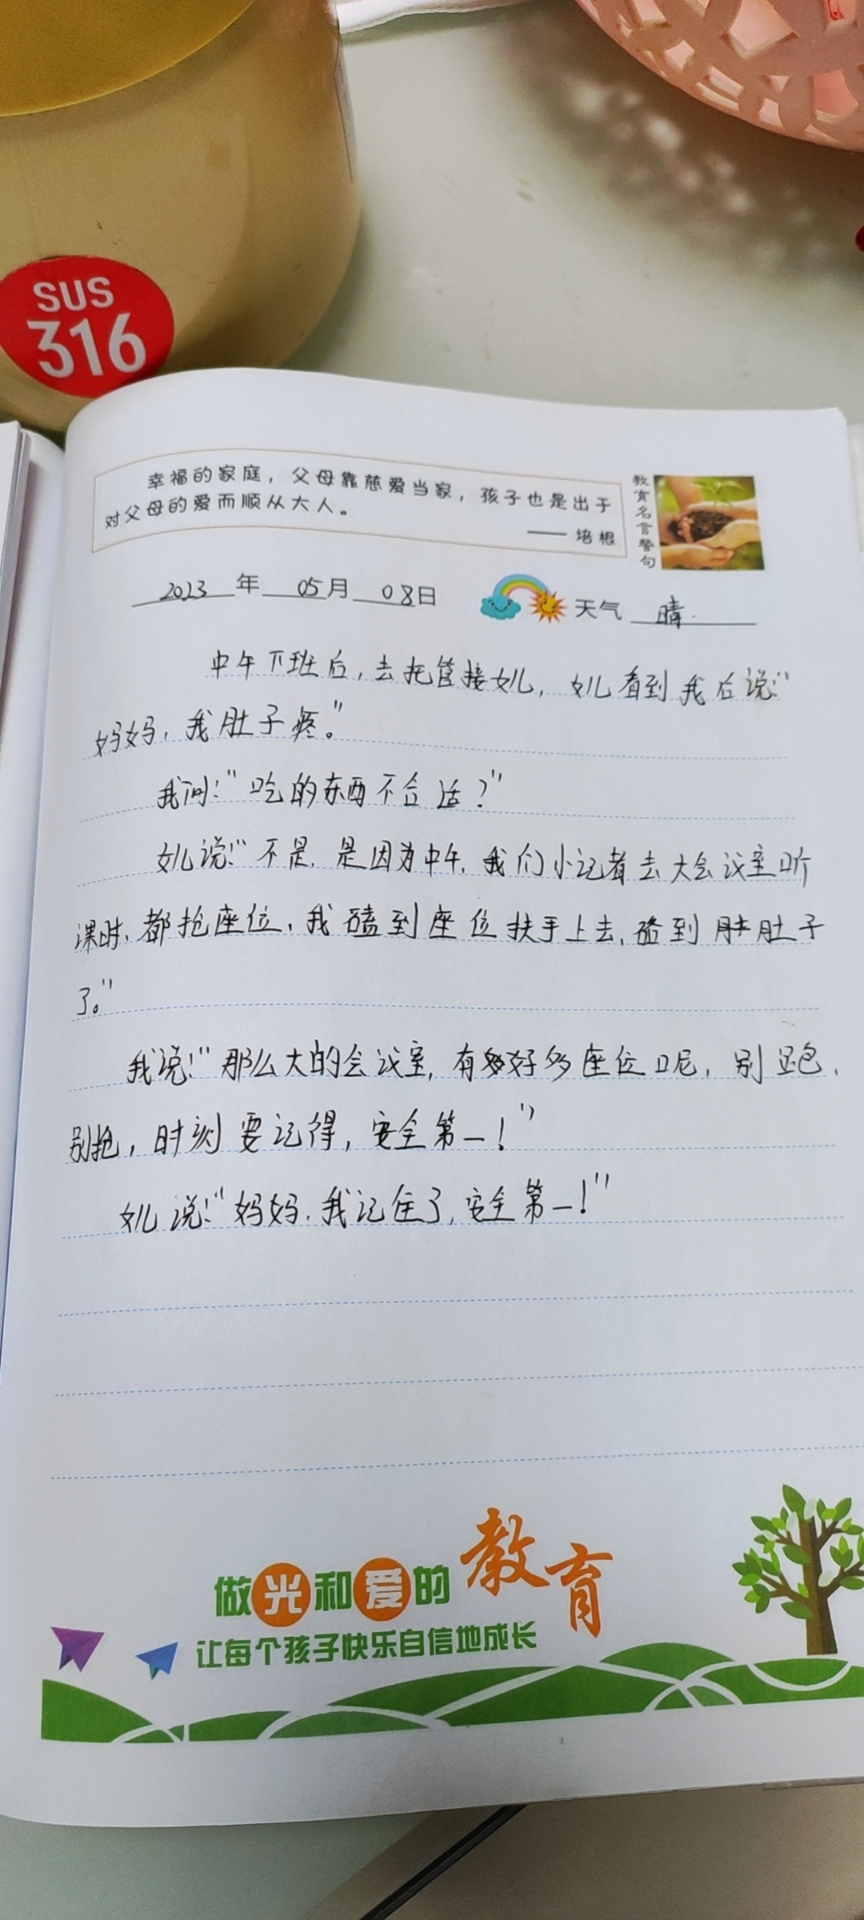 SUS
316
幸福的家庭，父母靠慈爱当家，孩子也是出于
对父母的爱而顺从大人。
—— 培根
教育名言警句
2023年05月08日 天气 晴.
中午下班后，去托管接女儿，女儿看到我后说：“
妈妈，我肚子疼。”
我问：“吃的东西不合适？”
女儿说：“不是，是因为中午，我们小记者去大会议室听
课时，都抢座位，我磕到座位扶手上去，硌到肚子
了。”
我说：“那么大的会议室，有好多座位呢，别跑，
别抢，时刻要记得，安全第一！”
女儿说：“妈妈，我记住了，安全第一！”
做光和爱的教育
让每个孩子快乐自信地成长